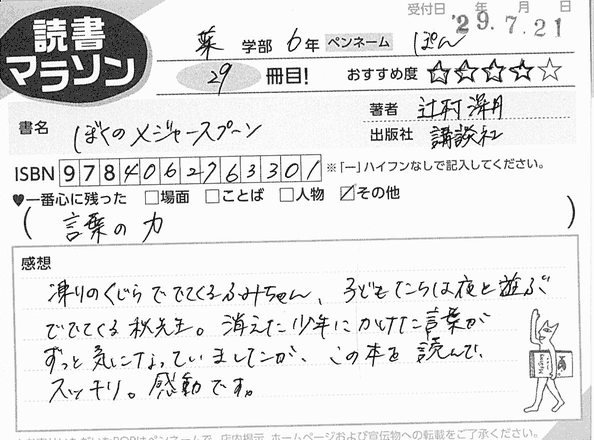 受付日 年 月 日
'29.7.21
読書
マラソン
薬 学部 6年 ペンネーム ぽん
29 冊目! おすすめ度 ★★★★☆
著者 辻村深月
書名 ぼくのメジャースプーン
出版社 講談社
ISBN 9784062763301 ※「ー」ハイフンなしで記入してください。
♥一番心に残った □場面 □ことば □人物 ☑その他
(言葉の力)
感想
凍りのくじらででてくるふみちゃん、子どもたちは夜と遊ぶ
ででてくる秋先生。消えた少年にかけた言葉が
ずっと気になっていましたが、この本を読んで、
スッキリ。感動です。
店内掲示、ホームページおよび宣伝物への転載をご了承ください。